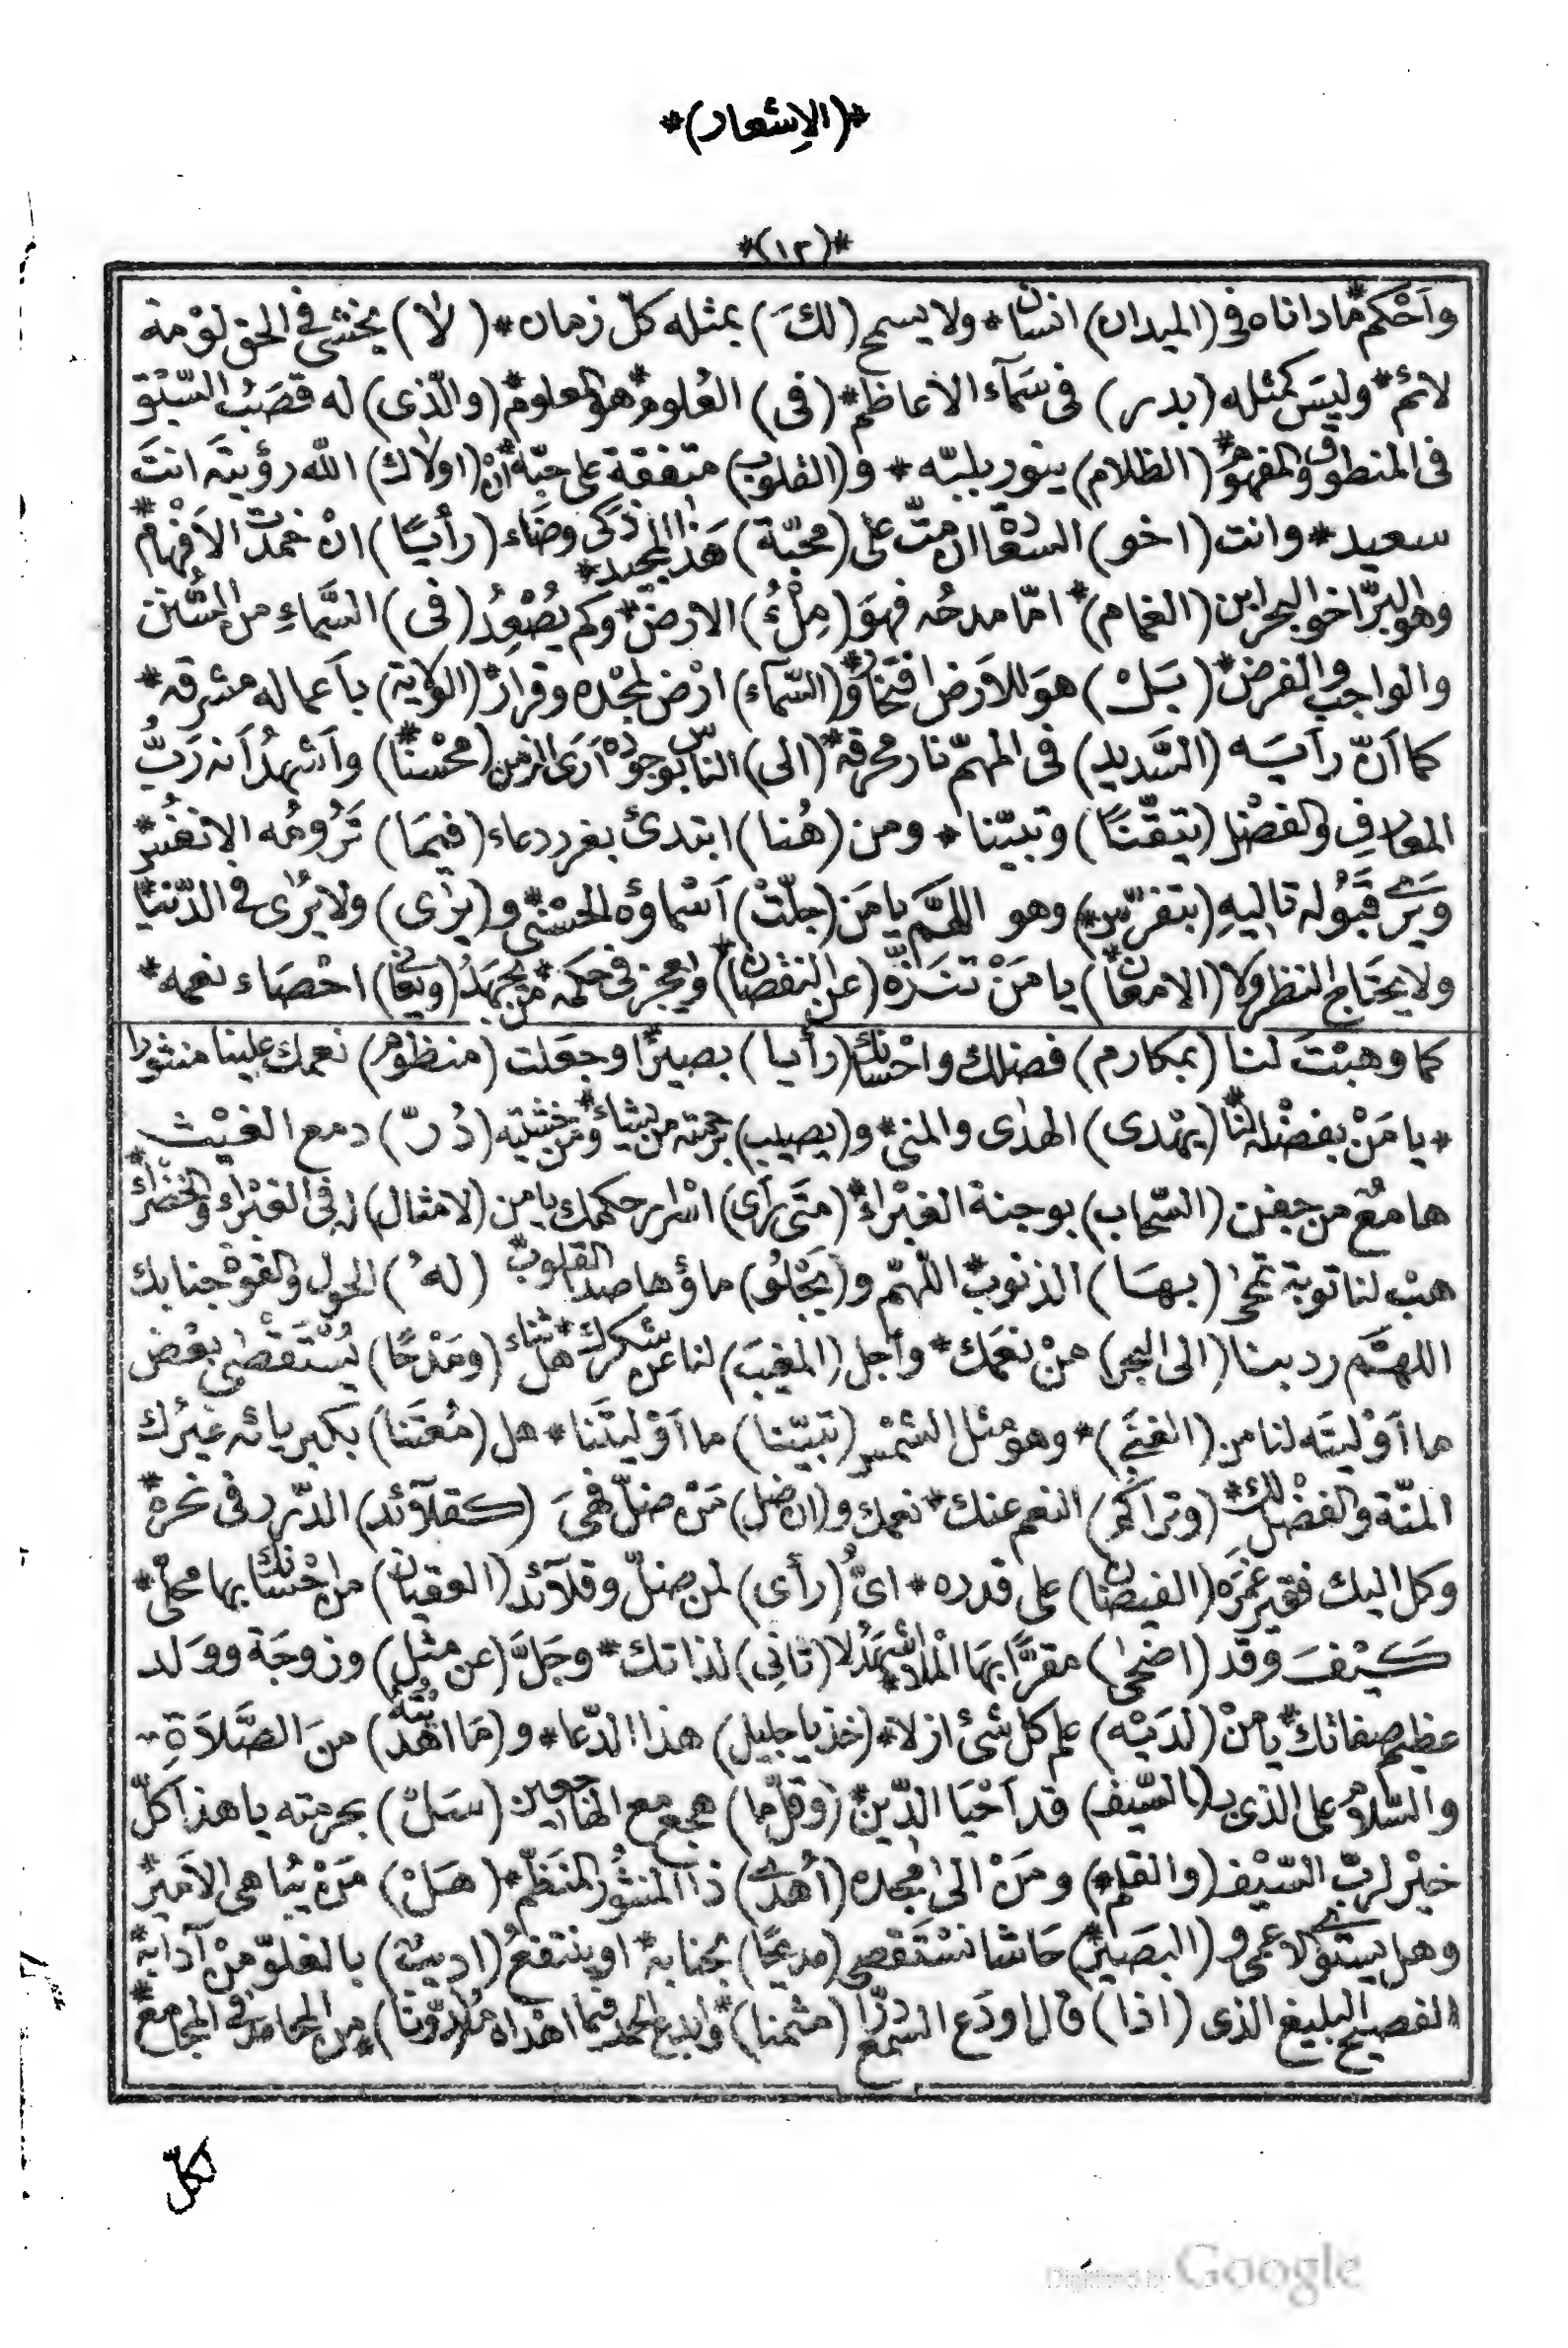 *(الإشعار)*
*(١٢)*
وأَحْكم* ماداناه فى (الميدان) انسان* ولايسمح (لكَ) بمثله كلّ زمان* (لا) يخشى فى الحق لوْمة
لائم* وليسَ كمثله (بدر) فى سَمآء الاعاظم* (فى) العُلوم* هو المعلوم* (والّذى) له قصَبُ السّبْق
فى المنطوق والمفهوم* (الظلام) ينور بلبّه* و(القلوب) متفقة على حبّه* انْ (اولاك) الله رؤيتَه انتَ
سعيد* وانت (اخو) السعْادة ان متّ على (محبّة) هَذا المجيد* اذكى وضَّاء (رأيًا) انْ خمدَت الاَفْهام*
وهو البرّ اخو البحر ابن (الغمام)* امّا مدحُه فهوَ (مِلْءُ) الارض* وكم يصْعدُ (فى) السَّماءِ من السُّنَن
والواجب والفرض* (بَلْ) هوَ للاَرض افتخار* و(السّمآء) ارْض لمجْده وقرار* (الولاية) بأَعماله مشرقه*
كما اَنّ رأيَه (السَّديد) فى المهمّ نار محرقه* (الى) الناس بوجوده اَرَى الزمن (محْسنًا)* وأَشهدُ اَنه رَبُّ
المعارفِ والفضْل (تيقّنًا) وتبيّنا* ومن (هُنا) ابتدئ بغرر دعاء (فيمَا) تَرُومُه الانفُس*
وَيَرَى قَبَوُله تاليهِ (بتفرّس)* وهو اللهَّم يامَن (جلّتْ) أَسْماؤه الحسْنى و(يرٰى) ولايُرٰى فى الدّنيَا*
ولايحتَاج للنظر ولا (الامعان)* يا مَنْ تنَزّه (عن النقصان)* ويعجز فى حكمه* مَن يجهَدُ (ويعَانى) احْصَاء نعمه*
كما وهبْتَ لنا (بمكارم) فضلك واحْسانك (رأيا) بصيرًا* وجعَلت (منظوم) نعمك علينا منثورا
* يا مَنْ بفضْله لنا* (يهْدى) الهدٰى والمنى* و(يصيب) برحمته من يشاء* ومن خشيته (دُرّ) دمع الغيْث
هامعٌ من جفن (السّحاب) بوجنة الغبْراء* (متَى رَأى) اسْرار حكمك يا من (لامثال) له فى الغبْراء والخضْراء*
هبْ لنا توبة تمحٰى (بهَا) الذنوب* اللّهمّ و(يَجْلو) ماؤها صدا القلوب* (لهُ) الحوْل والقوة جنابك
اللهَّم رد بنا (الى البحر) منْ نعَمك* وأجل (المغيبَ) لنا عن شكرك* هل ثناء (ومَدْحًا) يُسْتَقصٰى بعْض
ما اَوْليتَه لنا من (الغنَى)* وهو مثل الشمْس (تبيّنا) ما اَوْليتَنا* هل (مُغتَنا) بكبريائه غيرُك
المنّة والفضْل لكْ* (وتراكم) النعم عنك* نعمك و(ان ضل) مَنْ ضلّ فهىَ (كقلآئد) الدّرر فى نحره*
وكل اليك فقير غمَره (الفيضان) على قدره* اىُّ (رأى) لمن ضلّ وقلآئد (العقيان) من احْسانك بها محلّى*
كَيْفَ وقد (اضحٰى) مقرًّا بهَا الملا* اشهَدُ لا (ثانى) لذاتك* وجَلَّ (عن مثل) وزوجَة ووَلد
عظيم صفاتك* يا منْ (لدَيْه) علم كل شئ ازلا* (خذ يا جليل) هذا الدّعا* و(مَا اهْديته) منَ الصَّلاَةِ
والسّلام على الذى بـ(السّيف) قد اَحْيَا الدّين* (وقلّما) هجع مع الهاجعين (سَلْ) بحرمته يا هذا كلّ
خيْر لربّ السّيْف (والقلم)* ومَنْ الى مجْده (أُهْدى) ذا المنثُور المنَظّم* (هَلْ) مَنْ يُباهى الامَير*
وهل يستوى الاعمى و(البصَير)* حَاشا نسْتَقصى (مديحًا) بجنابه* او ينتفعُ (اديب) بالغلوّ منْ آدابه*
الفصيح البليغ الذى (اذا) قال اودَع السّمعَ درّا (مثمنا)* وابدع الحمد فيما اهْداه (ملاوّنا)* من المحامد فى المجامع*
لكلّ
Digitized by Google